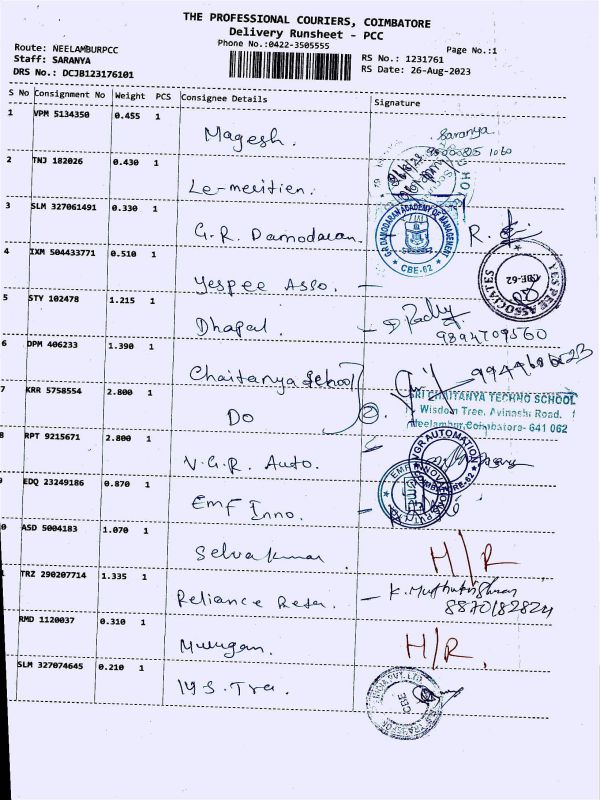 THE PROFESSIONAL COURIERS, COIMBATORE
Delivery Runsheet - PCC
Phone No.:0422-3505555
Page No.:1
Route: NEELAMBURPCC
Staff: SARANYA
DRS No.: DCJB123176101
RS No.: 1231761
RS Date: 26-Aug-2023
S No Consignment No Weight PCS Consignee Details Signature
1 VPM 5134350 0.455 1
Magesh. Saranya
2 TNJ 182026 0.430 1
Le-meritien.
3 SLM 327061491 0.330 1
G.R. Damodaran. GR DAMODARAN ACADEMY OF MANAGEMENT CBE-62 R.
4 IXM 504433771 0.510 1
Yespee Asso. — YESPEE ASSOCIATES CBE-62
5 STY 102478 1.215 1
Dhapal. — 9894709560
6 DPM 406233 1.390 1
Chaitanya School
7 KRR 5758554 2.800 1
Do ②. SRI CHAITANYA TECHNO SCHOOL
Wisdom Tree, Avinashi Road,
Neelambur,Coimbatore- 641 062
8 RPT 9215671 2.800 1
V.G.R. Auto. VGR AUTOMATION
9 EDQ 23249186 0.870 1
EMF Inno. EMF INNOVATIONS PVT LTD
0 ASD 5004183 1.070 1
Selvakumar H/R
1 TRZ 290207714 1.335 1
Reliance Retai. — K. Muthukrishnan
8870182824
RMD 1120037 0.310 1
Murugan. H/R.
SLM 327074645 0.210 1
M.S. Tra. CBE